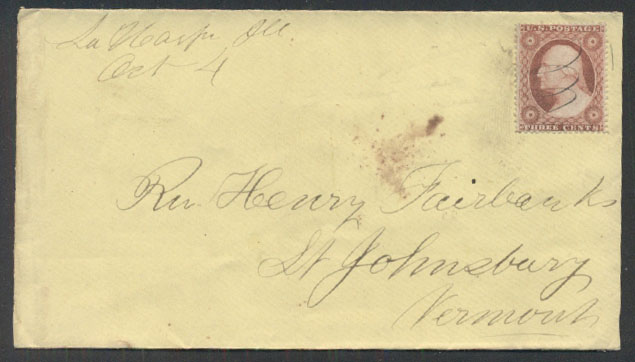 La Harpe Ill.
Oct 4
U.S. POSTAGE
THREE CENTS
Rev. Henry Fairbanks
St Johnsbury
Vermont